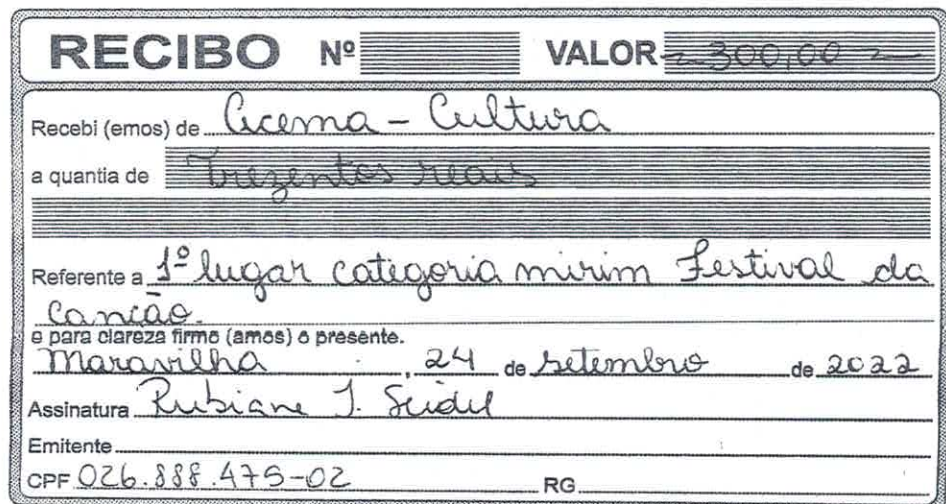 RECIBO Nº VALOR ~ 300,00 ~
Recebi (emos) de Acema - Cultura
a quantia de Trezentos reais
Referente a 1º lugar categoria mirim Festival da
Canção.
e para clareza firmo (amos) o presente.
Maravilha , 24 de setembro de 2022
Assinatura Rubiane J. Seidel
Emitente
CPF 026.888.475-02 RG